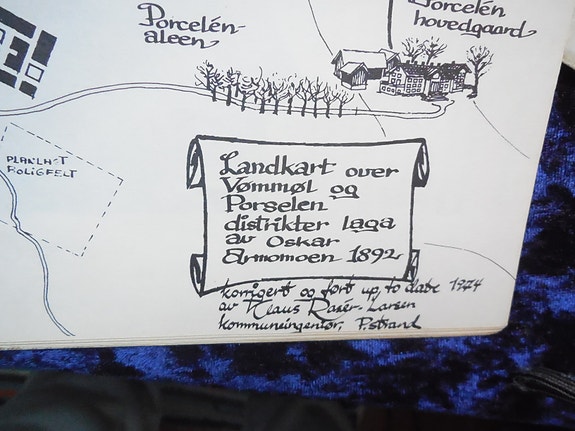 Porcelén-
aleen
Porcelén
hovedgaard
PLANLAGT
BOLIGFELT
Landkart over
Vømmøl og
Porselen
distrikter laga
av Oskar
Armomoen 1892
korrigert og ført up to date 1974
av Klaus Rasér-Larsen
kommuneingeniør, P.strand